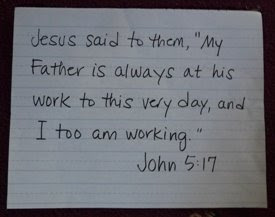 Jesus said to them, "My
Father is always at his
work to this very day, and
I too am working."
John 5:17